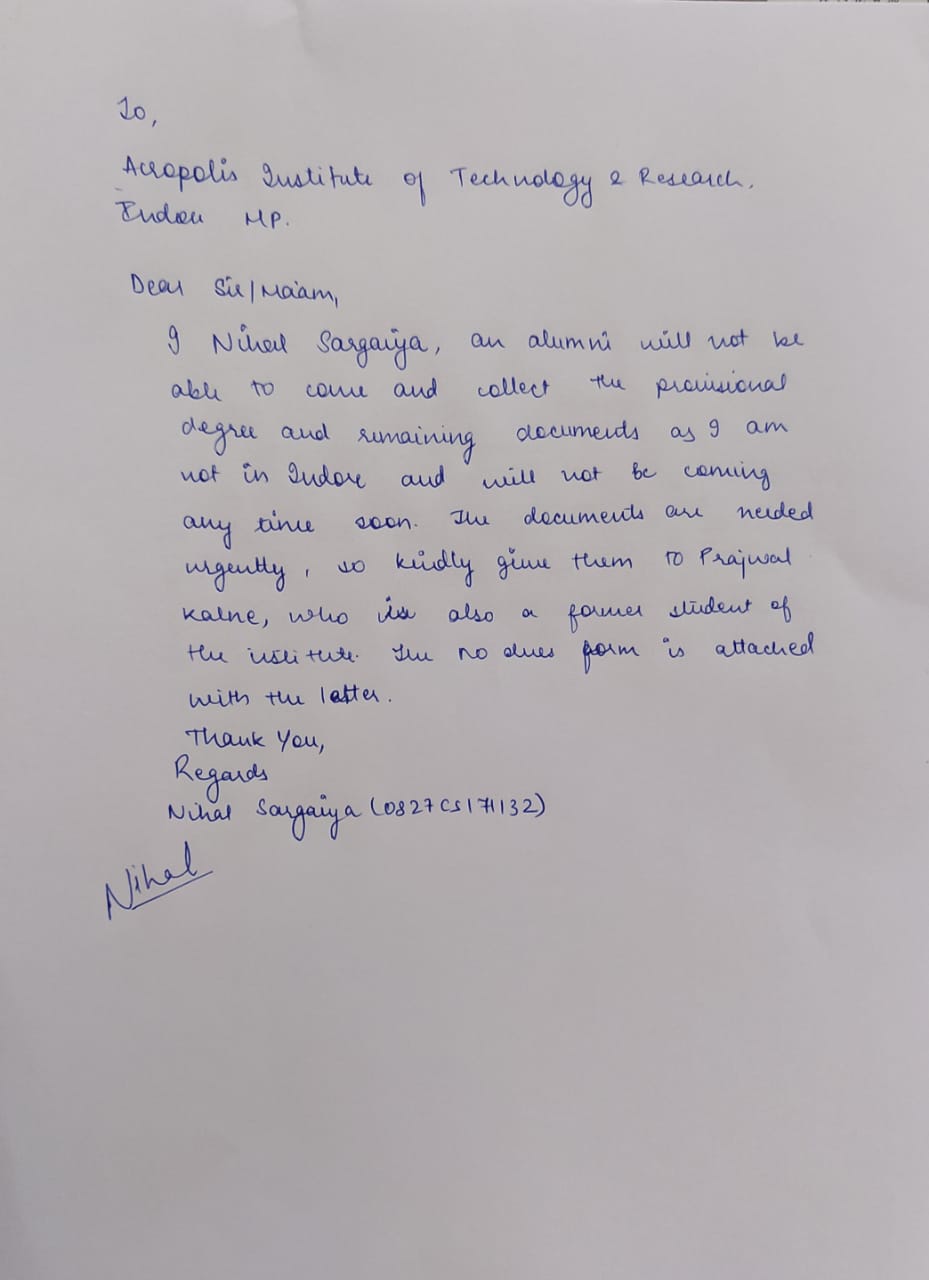 To,
Acropolis Institute of Technology & Research.
Indore MP.
Dear Sir/Ma'am,
I Nihal Sargaiya, an alumni will not be
able to come and collect the provisional
degree and remaining documents as I am
not in Indore and will not be coming
any time soon. The documents are needed
urgently, so kindly give them to Prajwal
Kalne, who is also a former student of
the institute. The no dues form is attached
with the letter.
Thank You,
Regards
Nihal Sargaiya (0827CS171132)
Nihal